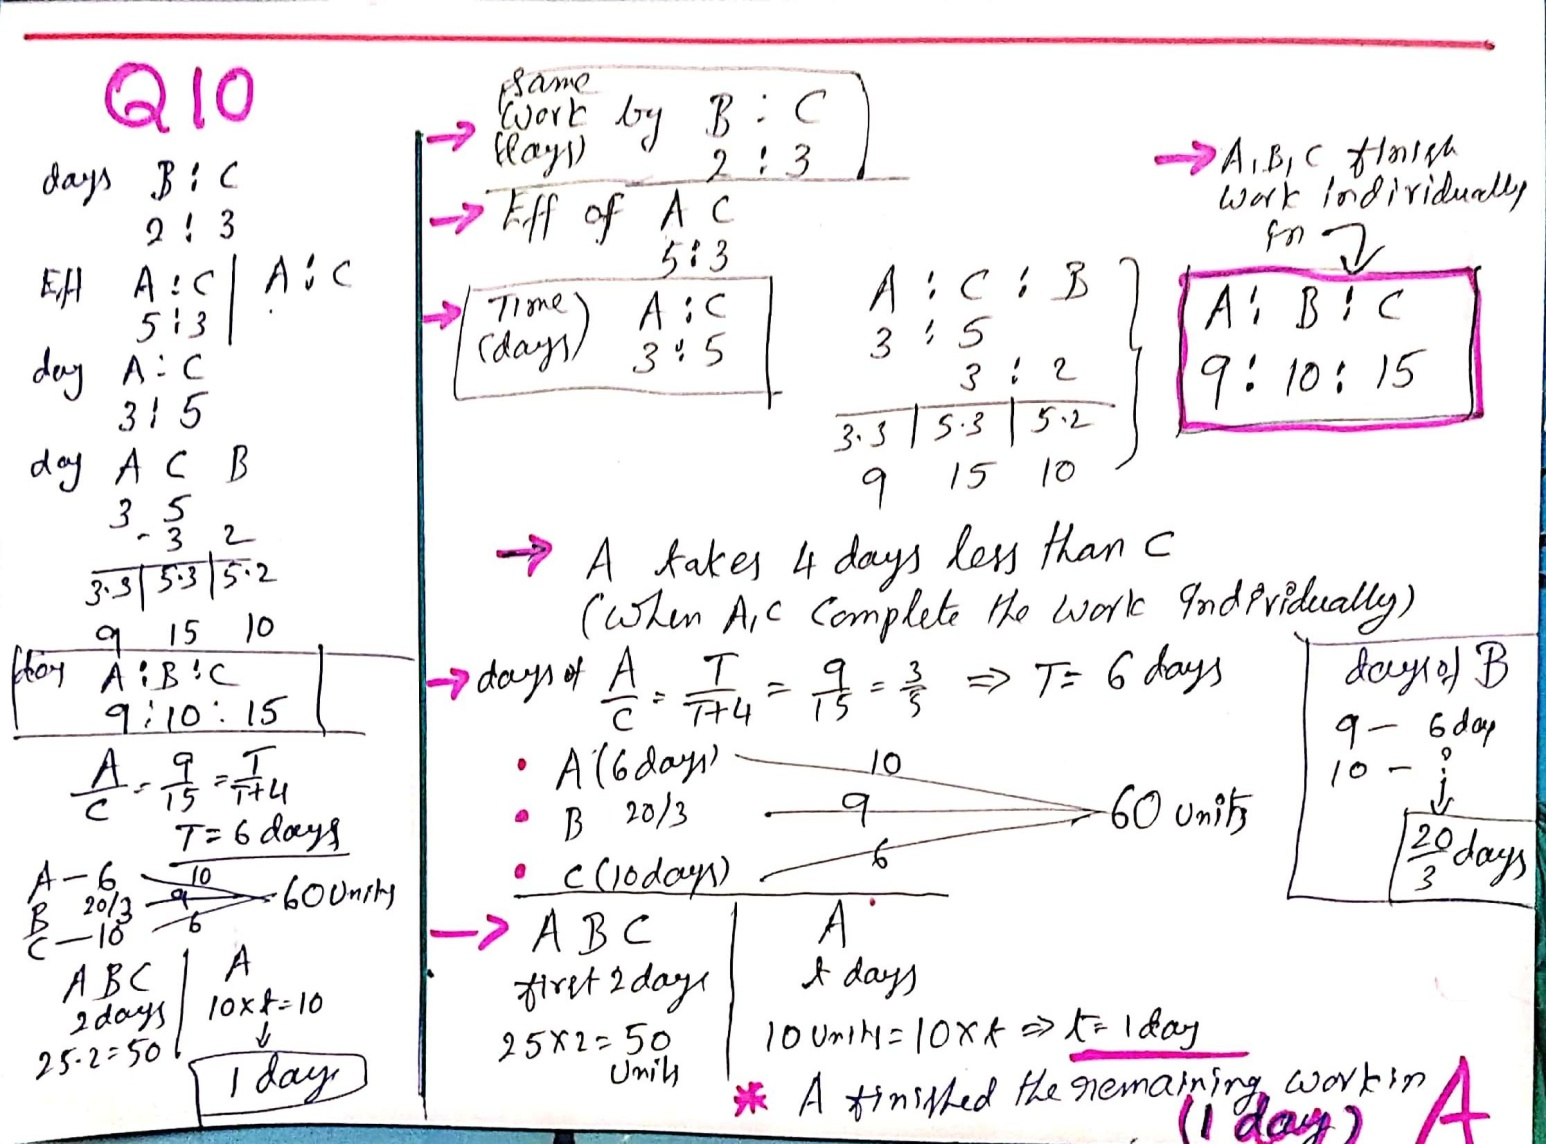 Q10
days B : C
2 : 3
Eff A : C | A : C
5 : 3
day A : C
3 : 5
day A C B
3 5
- 3 2
3.3 | 5.3 | 5.2
9 15 10
day A : B : C
9 : 10 : 15
A/C = 9/15 = T/T+4
T = 6 days
A - 6 10
B 20/3 9 60 Units
C - 10 6
A B C | A
2 days 10 x t = 10
25.2 = 50
1 day
→ Same work by B : C
(days) 2 : 3
→ Eff of A C
5 : 3
→ Time (days) A : C
3 : 5
A : C : B
3 : 5
3 : 2
3.3 | 5.3 | 5.2
9 15 10
→ A, B, C finish
work individually
in
A : B : C
9 : 10 : 15
→ A takes 4 days less than C
(when A, C complete the work individually)
→ days of A/C = T/T+4 = 9/15 = 3/5 ⇒ T = 6 days
• A (6 days) 10
• B 20/3 9 60 Units
• C (10 days) 6
days of B
9 - 6 day
10 - ?
20/3 days
→ A B C | A
first 2 days t days
25 x 2 = 50 Units
10 Units = 10 x t ⇒ t = 1 day
* A finished the remaining work in
(1 day) A